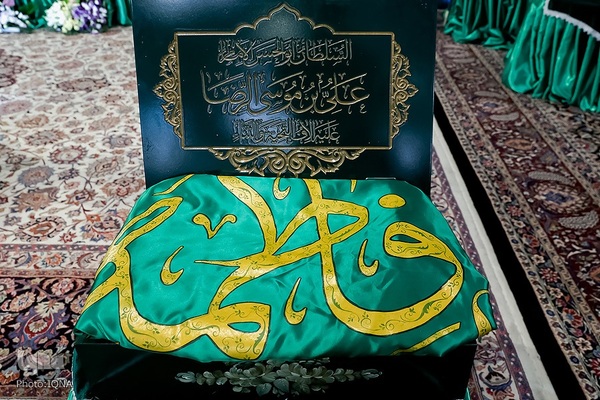 السلطان أبو الحسن الإمام
علي بن موسى الرضا
عليه آلاف التحية والثناء
فاطمة
Photo:IQNA